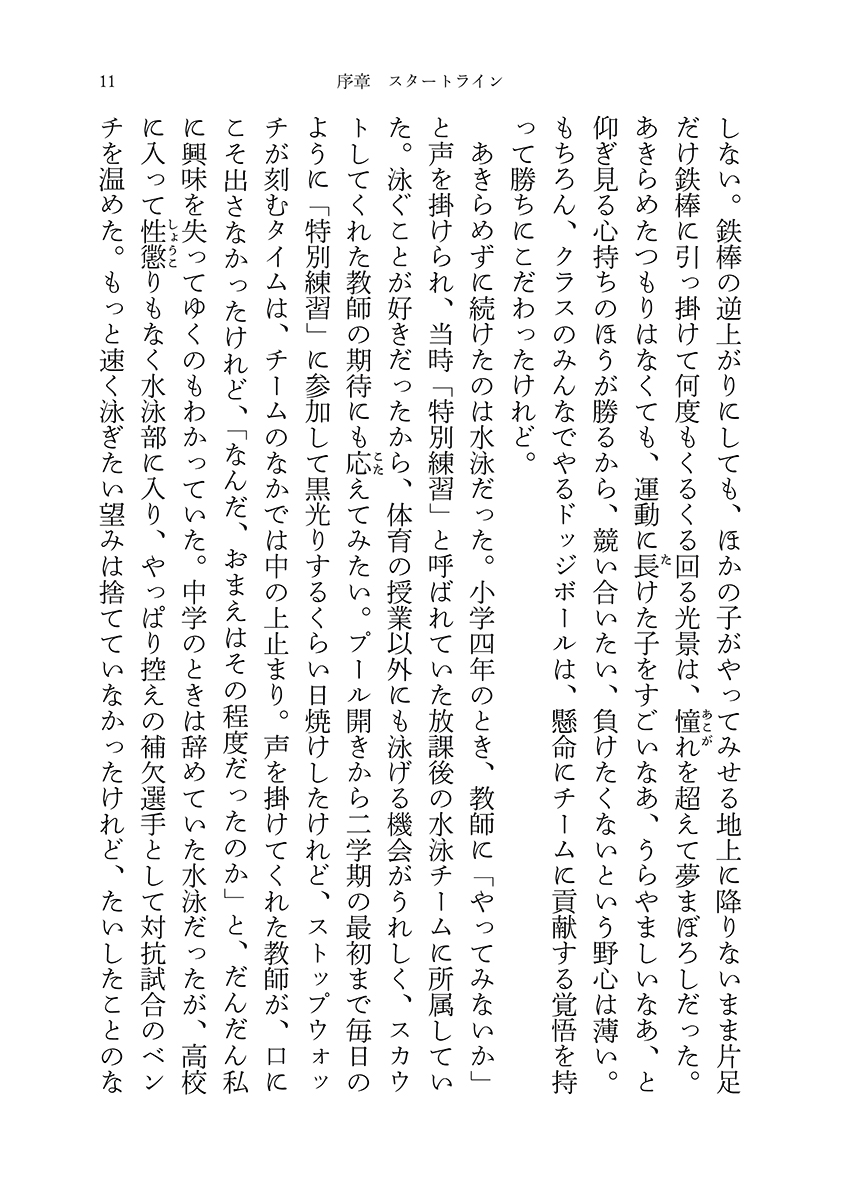 11
序章　スタートライン
しない。鉄棒の逆上がりにしても、ほかの子がやってみせる地上に降りないまま片足
だけ鉄棒に引っ掛けて何度もくるくる回る光景は、憧れを超えて夢まぼろしだった。
あこが
あきらめたつもりはなくても、運動に長けた子をすごいなあ、うらやましいなあ、と
た
仰ぎ見る心持ちのほうが勝るから、競い合いたい、負けたくないという野心は薄い。
もちろん、クラスのみんなでやるドッジボールは、懸命にチームに貢献する覚悟を持
って勝ちにこだわったけれど。
あきらめずに続けたのは水泳だった。小学四年のとき、教師に「やってみないか」
と声を掛けられ、当時「特別練習」と呼ばれていた放課後の水泳チームに所属してい
た。泳ぐことが好きだったから、体育の授業以外にも泳げる機会がうれしく、スカウ
トしてくれた教師の期待にも応えてみたい。プール開きから二学期の最初まで毎日の
こた
ように「特別練習」に参加して黒光りするくらい日焼けしたけれど、ストップウォッ
チが刻むタイムは、チームのなかでは中の上止まり。声を掛けてくれた教師が、口に
こそ出さなかったけれど、「なんだ、おまえはその程度だったのか」と、だんだん私
に興味を失ってゆくのもわかっていた。中学のときは辞めていた水泳だったが、高校
に入って性懲りもなく水泳部に入り、やっぱり控えの補欠選手として対抗試合のベン
しょうこ
チを温めた。もっと速く泳ぎたい望みは捨てていなかったけれど、たいしたことのな